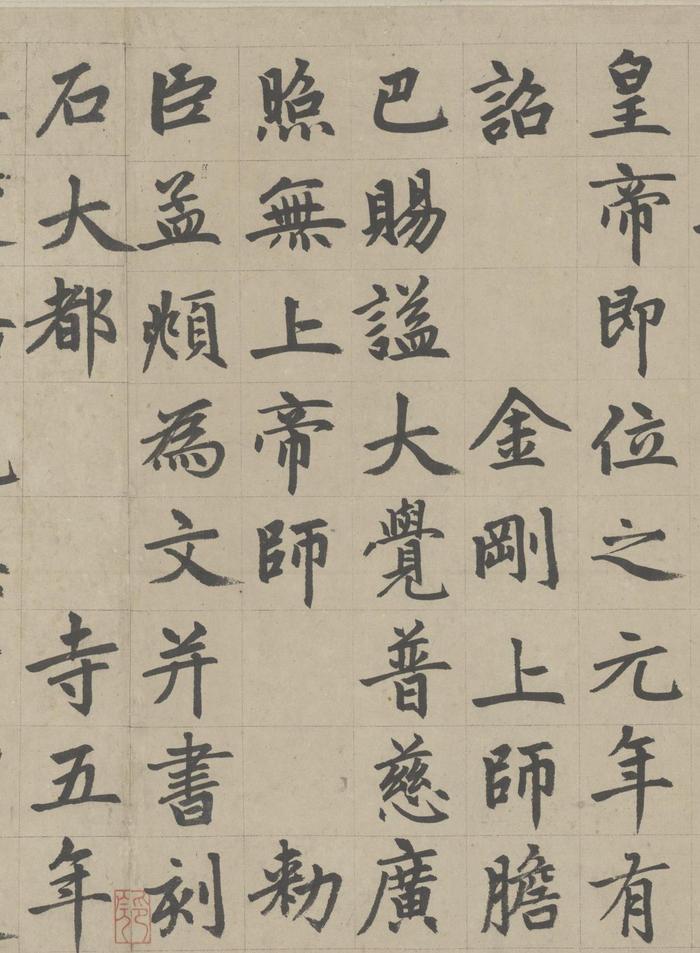 皇帝即位之元年有
詔 金剛上師膽
巴賜謚大覺普慈廣
照無上帝師 勅
臣孟頫為文并書刻
石大都 寺五年